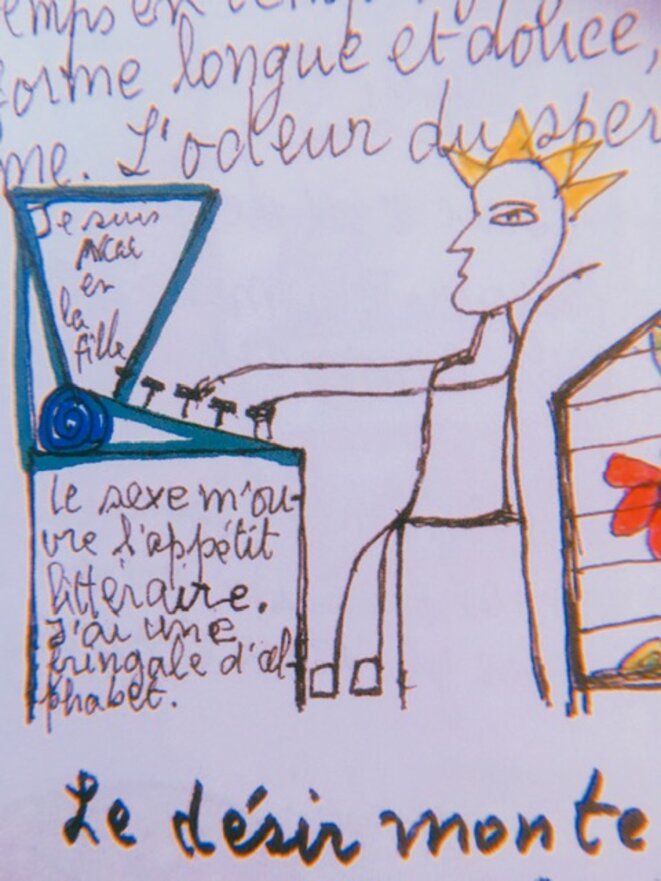 emps en temps
forme longue et douce,
me. L'odeur du sper
Je suis
en
la
fille
Le sexe m'ou-
vre l'appétit
littéraire.
J'ai une
fringale d'al-
phabet.
Le désir monte